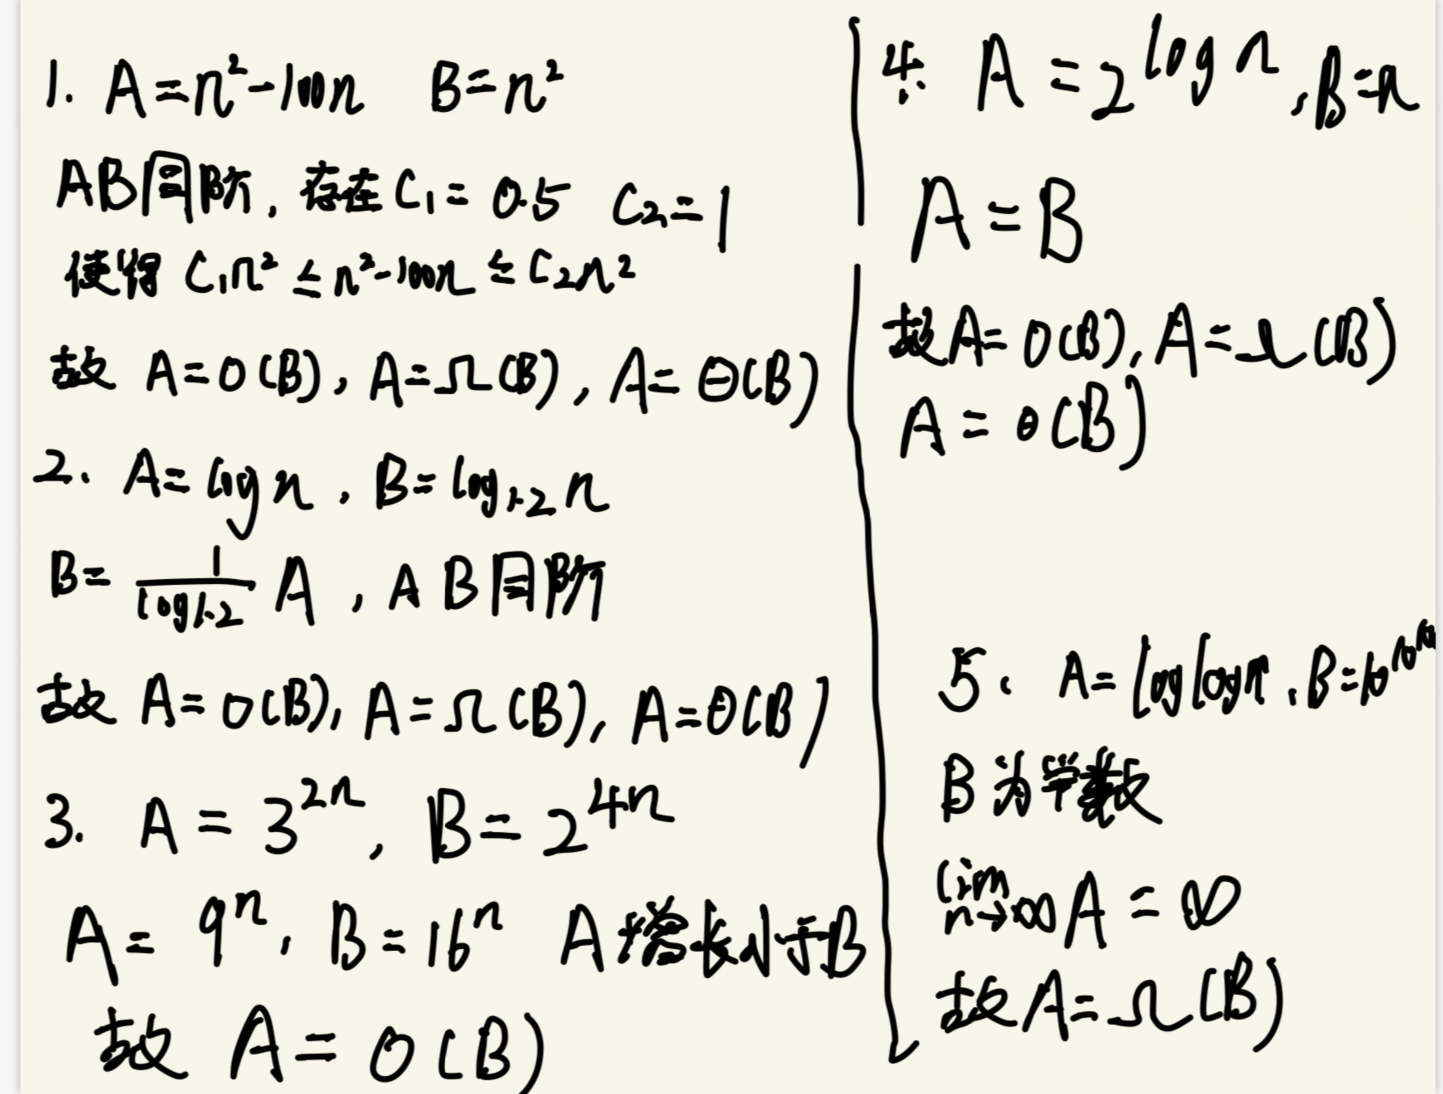 1. A=n²-100n B=n²
AB同阶, 存在C₁=0.5 C₂=1
使得 C₁n² ≤ n²-100n ≤ C₂n²
故 A=O(B), A=Ω(B), A=Θ(B)
2. A=log n, B=log₁.₂ n
B= 1/log1.2 A, A B同阶
故 A=O(B), A=Ω(B), A=Θ(B)
3. A=3²ⁿ, B=2⁴ⁿ
A=9ⁿ, B=16ⁿ A增长小于B
故 A=O(B)
4. A=2^log n, B=n
A=B
故A=O(B), A=Ω(B)
A=Θ(B)
5. A=log log n, B=10^10
B为常数
lim n→∞ A=∞
故A=Ω(B)